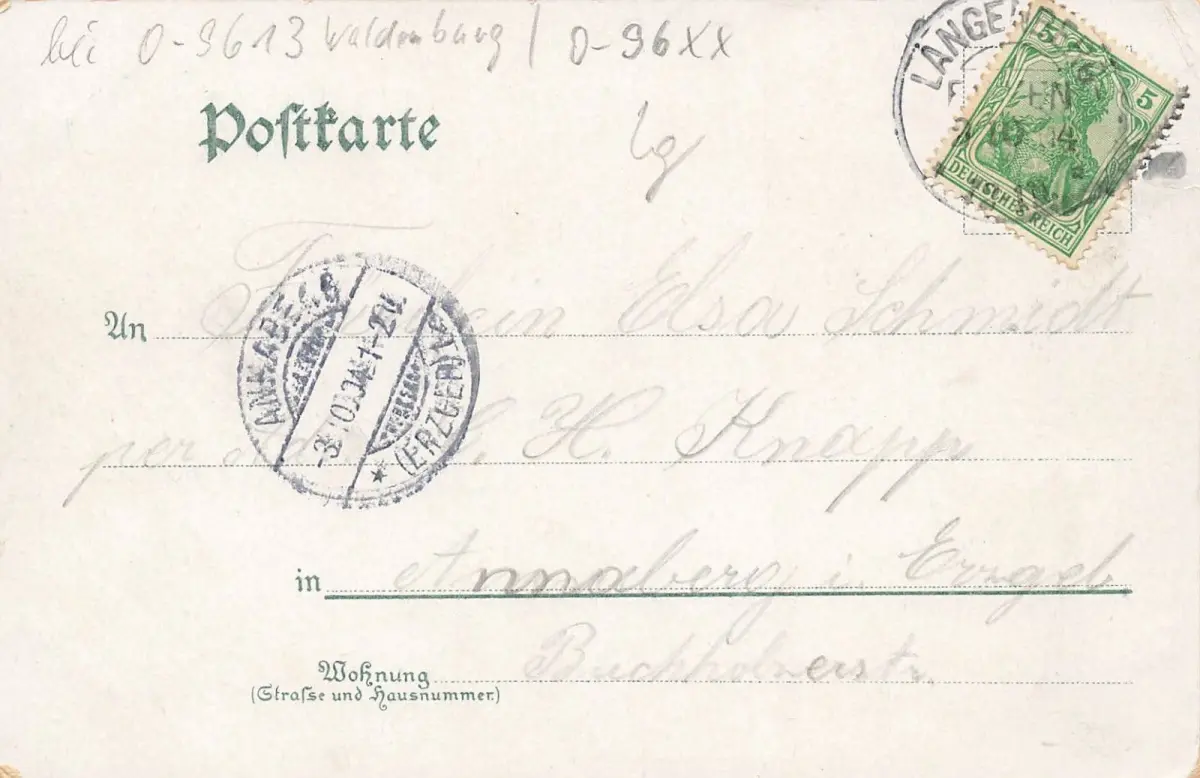 bei O-9613 Waldenburg / O-96XX
Postkarte
lg
5 5
DEUTSCHES REICH
An Fräulein Elsa Schmidt
ANNABERG
-3.10.04. 1-2N.
* (ERZGEB.)
per Adr. H. Knapp
in Annaberg i. Erzgeb
Wohnung Buchholzerstr.
(Strasse und Hausnummer.)